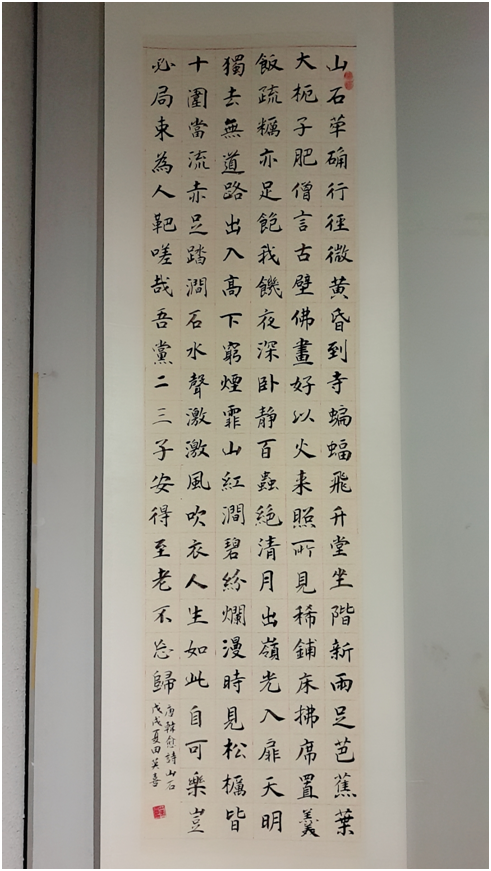 山石荦确行徑微黃昏到寺蝙蝠飛升堂坐階新雨足芭蕉葉
大栀子肥僧言古壁佛畫好以火来照所見稀鋪床拂席置羹
飯疏糲亦足飽我饑夜深卧靜百蟲絕清月出嶺光入扉天明
獨去無道路出入高下窮煙霏山紅澗碧紛爛漫時見松櫪皆
十圍當流赤足踏澗石水聲激激風吹衣人生如此自可樂豈
必局束為人靶嗟哉吾黨二三子安得至老不忘歸
唐韓愈詩山石
戊戌夏田英喜